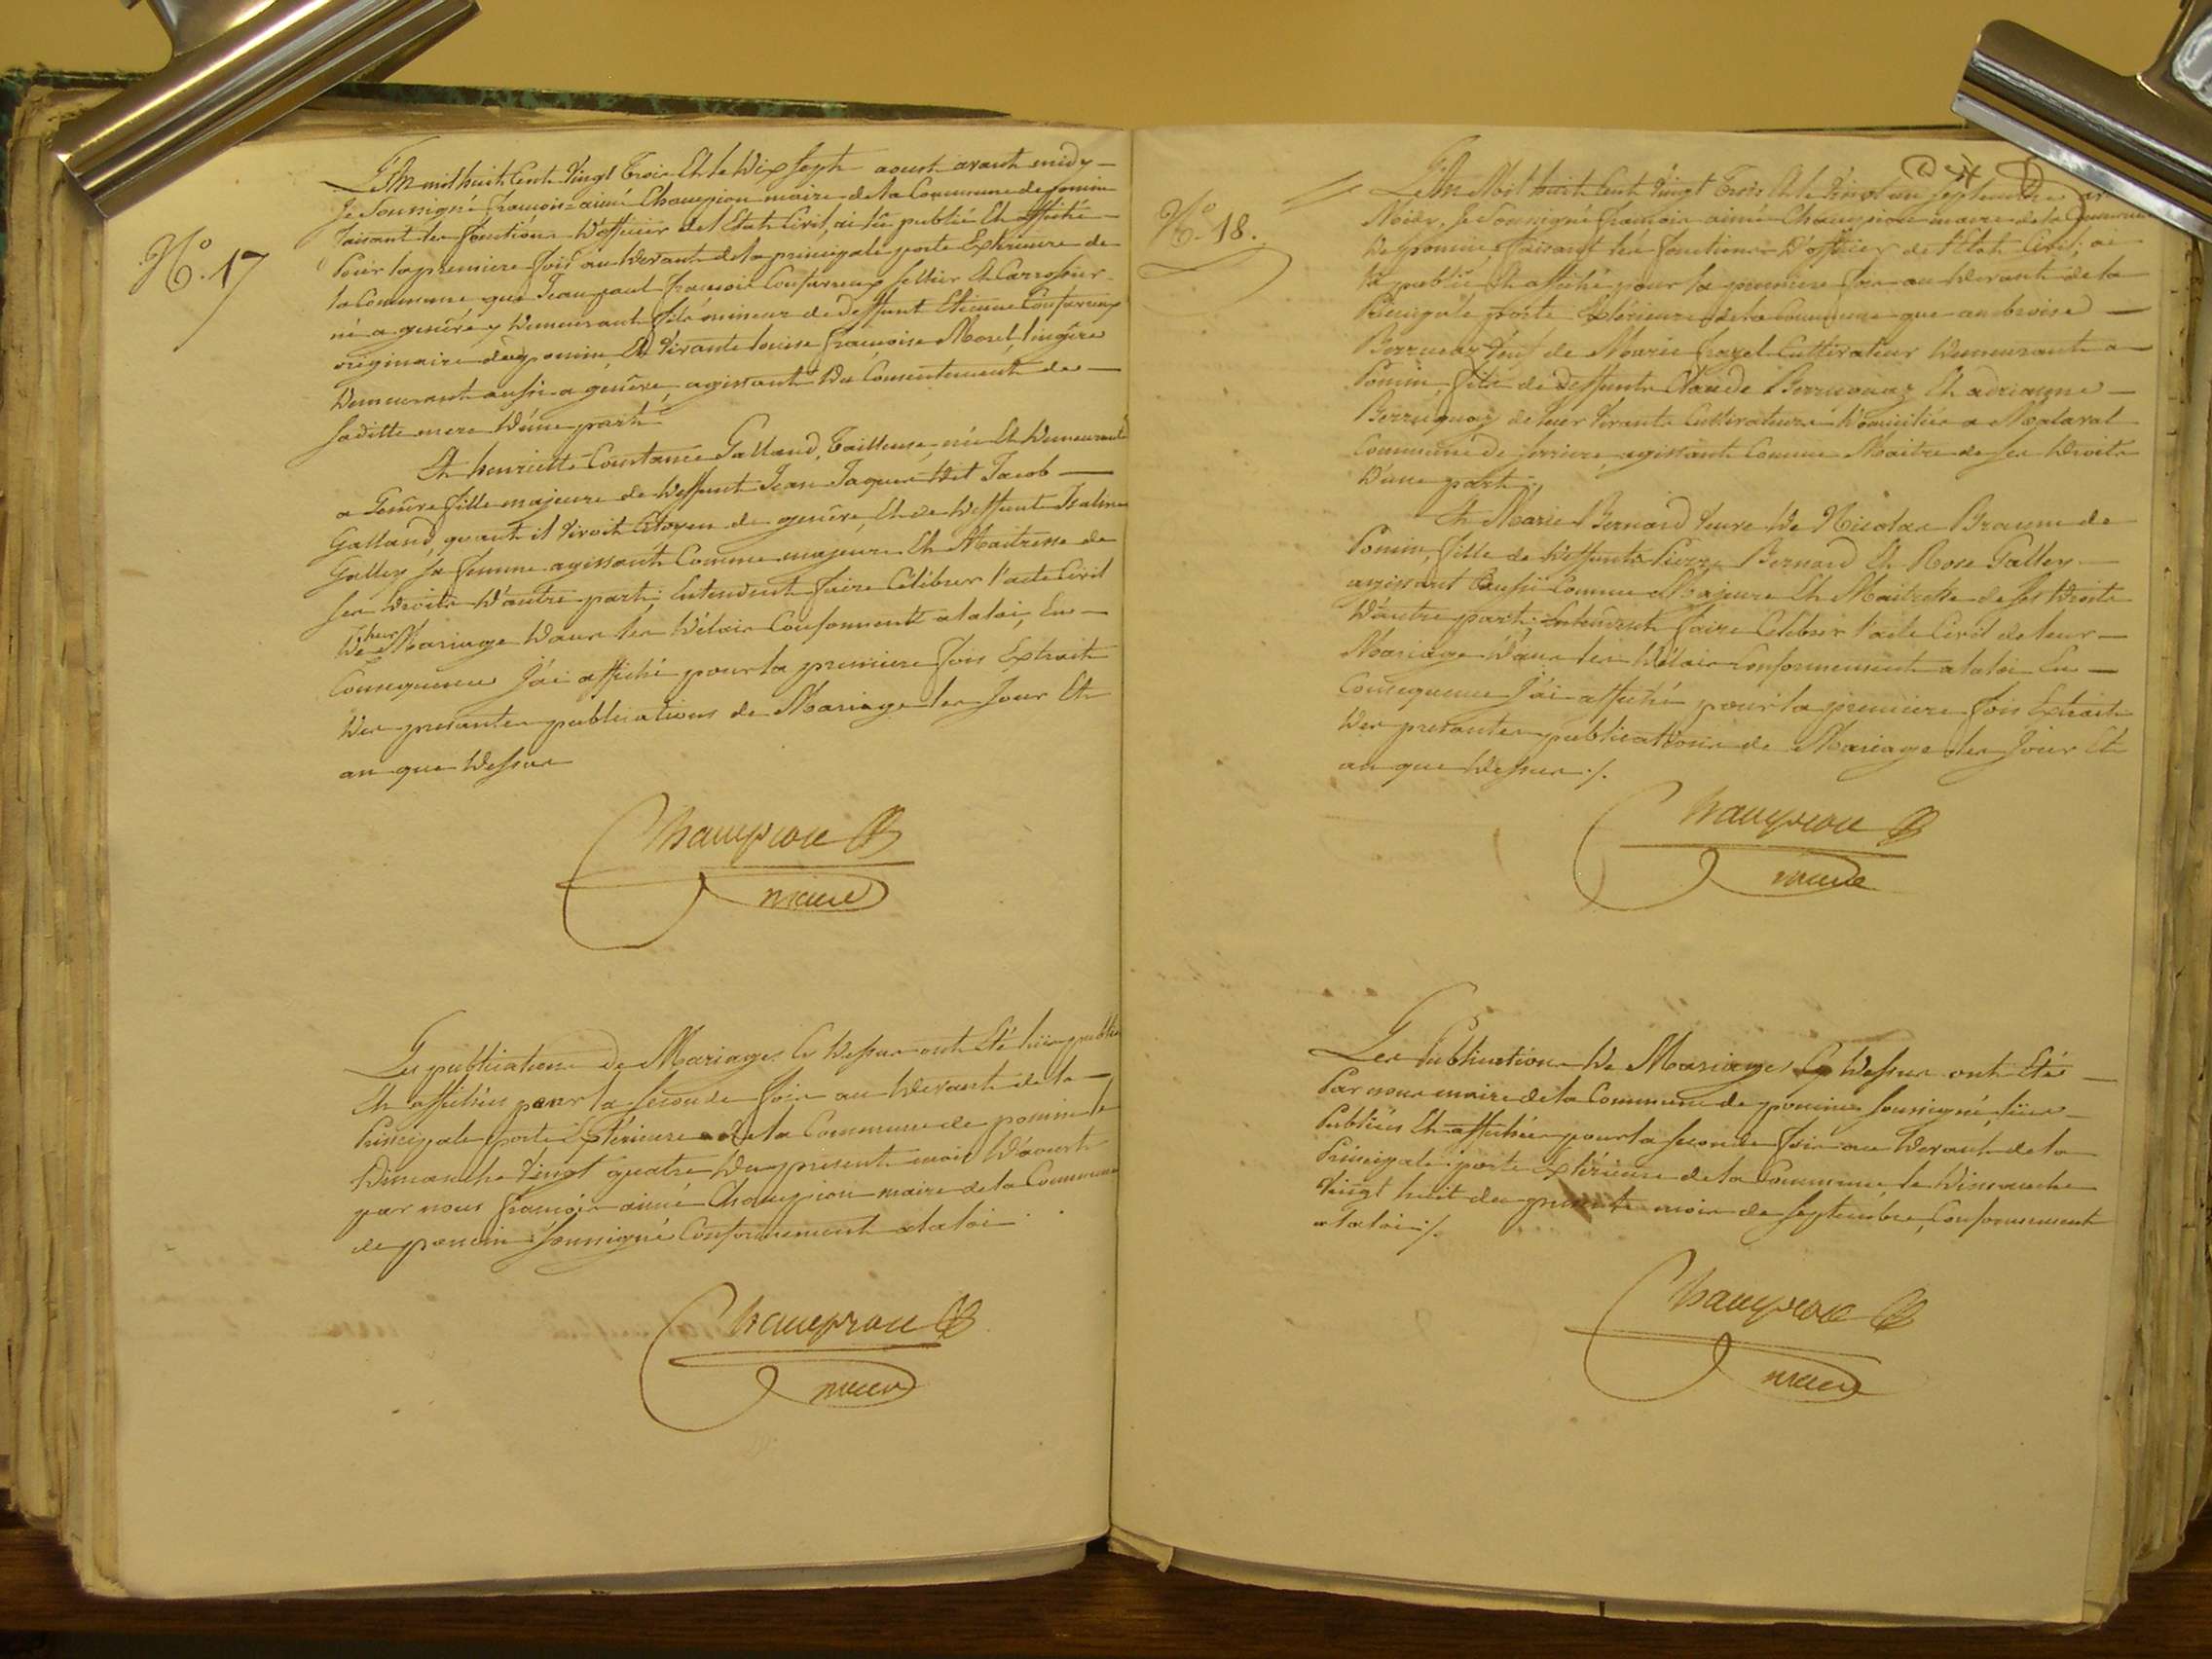 N.o 17
L'An mil huit Cent Vingt Trois Et le Dix Sept aoust avant midy
Je Soussigné françois aimé Champion maire de la Commune de pomin
faisant les fonctions D'officier de l'Etat Civil, ai lû publié Et affiché
Pour la premiere fois au Devant de la principale porte Exterieure de
la Commune que Jean paul françois Confavreux Sellier Et Carrossier
né a genêve y Demeurant fils mineur de Deffunt Etienne Confavreux
originaire de pomin, Et Vivante louise françoise Morel, lingère
Demeurant aussi a genêve, agissant Du Consentement de
saditte mere D'une part
Et henriette Constance Galland, Tailleuse, née Et Demeurant
a Genêve fille majeure de Deffunt Jean Jaques Jacob
Galland, quant il Vivoit Citoyen de genêve, Et de Deffunte
Galley Sa femme agissant Comme majeure Et Maitresse de
Ses Droits D'autre part: Entendent faire Célébrer l'acte Civil
De leur Mariage Dans les Délais Conforment a la loi, En
Consequence J'ai affiché pour la premiere fois Extrait
Des presantes publications de Mariage les Jour Et
an que Dessus
Champion
maire
Les publications de Mariages Ci Dessus ont Eté lües publiées
Et affichées pour la seconde fois au Devant de la
Principale porte Extérieure de la Commune de pomin le
Dimanche Vingt quatre Du present mois D'aoust
par nous françois aimé Champion maire de la Commune
de pomin soussigné Conformement a la loi
Champion
maire
N.o 18.
L'An Mil huit Cent Vingt Trois Et le Vingt un septembre
Midy, Je Soussigné françois aimé Champion maire de la Commune
De pomin, faisant les fonctions D'officier de l'Etat Civil, ai
lû publié Et affiché pour la premiere fois au Devant de la
Principale porte Extérieure de la Commune que ambroise
Veuf de Marie Cultivateur Demeurant a
Pomin, fils de Deffunts Claude Et adrianne
de leur Vivants Cultivateurs Domiciliés a Malaval
Commune de agissant Comme Maitre de Ses Droits
D'une part.
Et Marie Bernard Veuve De Nicolas de
Pomin, fille de Deffunts Pierre Bernard Et Rose Galley
agissant aussi Comme Majeure Et Maitresse de Ses Droits
D'autre part; Entendent faire Célébrer l'acte Civil de leur
Mariage Dans les Délais Conformement a la loi En
Consequence J'ai affiché pour la premiere fois Extrait
Des presantes publications de Mariage les Jour Et
an que Dessus ./.
Champion
maire
Les Publications De Mariages Cy Dessus ont Eté
Par nous maire de la Commune de pomin soussigné, lües
Publiées Et affichées pour la seconde fois au Devant de la
Principale porte Extérieure de la Commune le Dimanche
Vingt huit du present mois de septembre, Conformement
a la loi ./.
Champion
maire